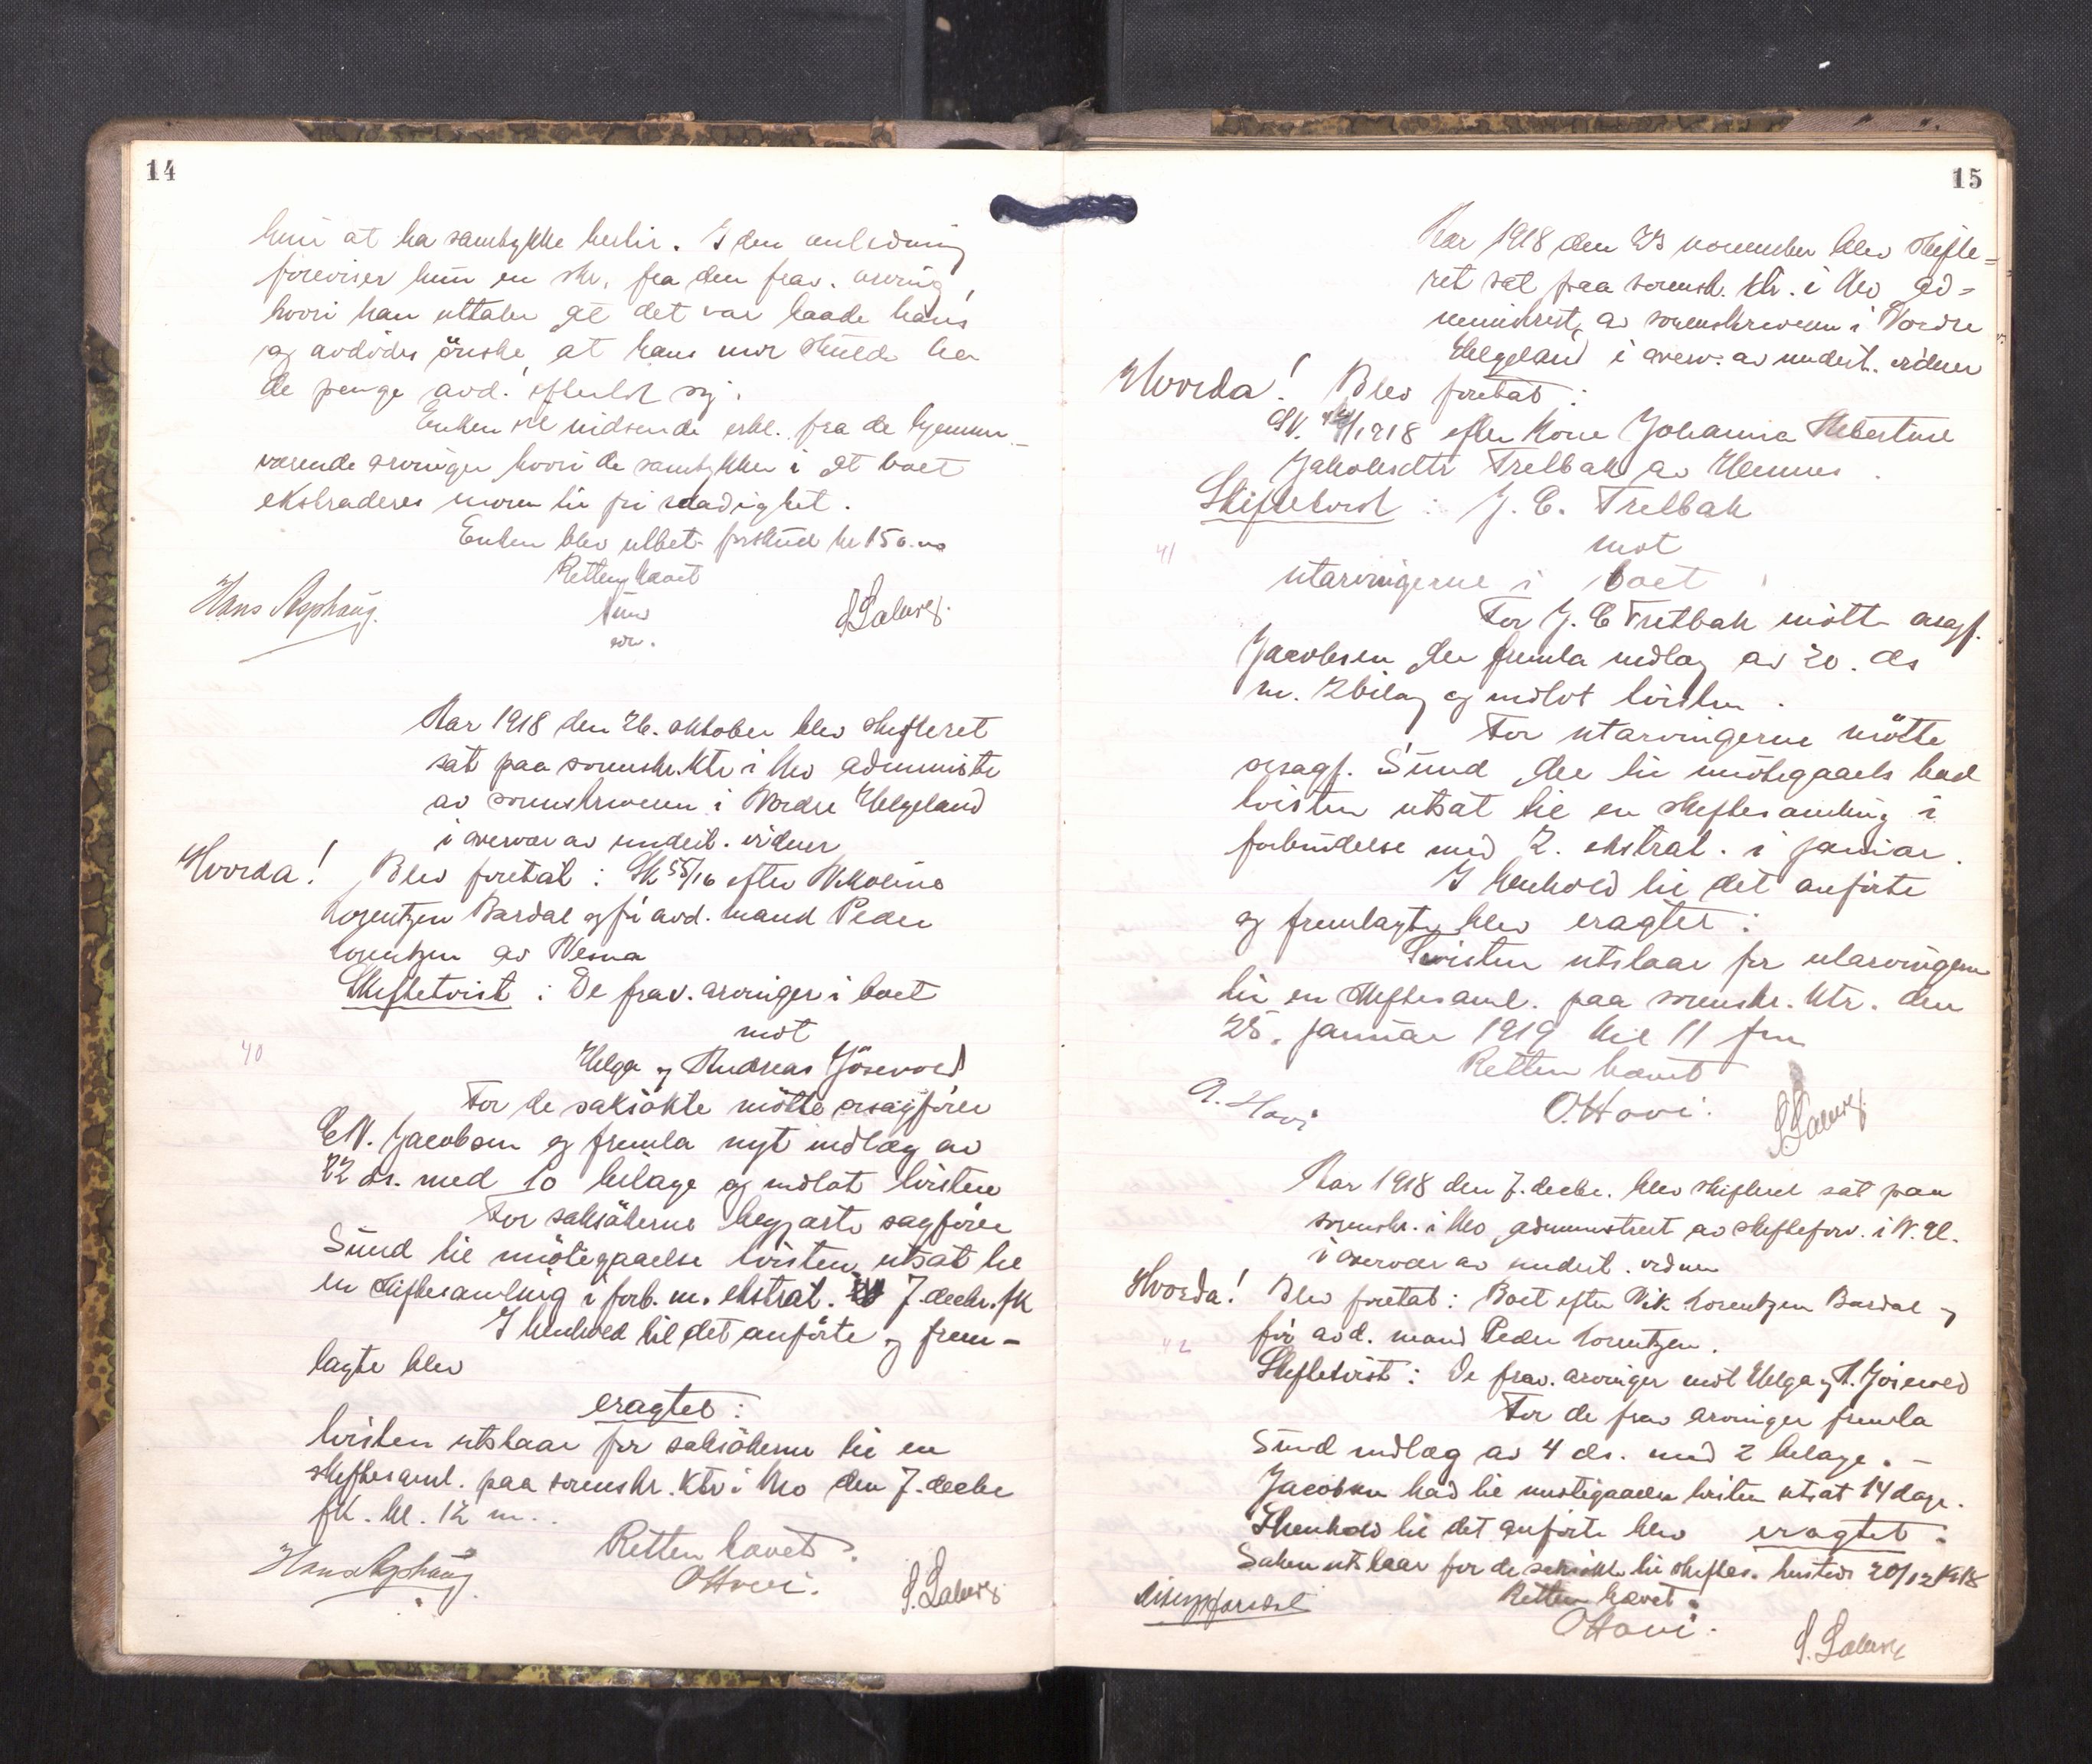 14
hun at ha samtykke hertil. I den anledning
foreviser hun en skr. fra den frav. arving,
hvori han uttaler at det var baade hans
og avdødes ønske at hans mor skulde ha
de penge avd. efterlot sig.
Enken vil indsende erkl. fra de hjemme-
værende arvinger hvori de samtykker i at boet
ekstraderes moren til fri raadighet.
Enken blev utbet. forskud kr 150.00
Retten hævet
Hans Asphaug.
Aar 1918 den 26. oktober blev skifteret
sat paa sorenskr.ktr i Mo administr
av sorenskriveren i Nordre Helgeland
i overvær av undert. vidner
Hvorda! Blev foretat: Sk 55/16 efter Nikoline
Lorentzen Bardal og før avd. mand Peder
Lorentzen av Nesna
Skiftetvist: De frav. arvinger i boet
mot
40
Helga og Andreas Jösevold
For de saksökte mötte orsagfører
E.N. Jacobsen og fremla nyt indlæg av
22 ds. med 10 bilage og indlot tvisten
For saksökerne begjærte sagfører
Sund til imötegaaelse tvisten utsat til
en skiftesamling i forb. m. ekstrat. 7. decbr. fk
I henhold til det anförte og frem-
lagte blev
eragtet:
Tvisten utstaar for saksökerne til en
skiftesaml. paa sorenskr. ktr i Mo den 7. decbr
fk. kl. 12 m..
Retten hævet.
Hans Asphaug
O Hovi.
15
Aar 1918 den 23 november blev skifte-
ret sat paa sorensk. ktr. i Mo ad-
ministrert av sorenskriveren i Nordre
Helgeland i overv. av undert. vidner
Hvorda! Blev foretat:
1918 efter kone Johanna Hebertine
Jakobsdtr Trelbak av Hemnes.
Skiftetvist: J. E. Trelbak
mot
41
utarvingerne i boet
For J. E Tretbak mötte orsagf.
Jacobsen der fremla indlæg av 20. ds
m. 2 bilag og indlot tvisten.
For utarvingerne mötte
orsagf. Sund der til imötegaaels bad
tvisten utsat til en skiftesamling i
forbindelse med 2. ekstrat. i januar.
I henhold til det anförte
og fremlagte blev eragtet:
Tvisten utstaar for utarvingerne
til en skiftesaml. paa sorenskr. ktr. den
25. januar 1919 kl 11 fm
Retten hævet
A. Hovi
O Hovi.
Aar 1918 den 7. decbr. blev skifteret sat paa
sorenskr. i Mo administrert av skifteforv. i N. Hl.
i overvær av undert. vidner
Hvorda! Blev foretat: Boet efter Nik Lorentzen Bardal og
42
før avd. mand Peder Lorentzen.
Skiftetvist: De frav. arvinger mot Helga og A. Jösevold
For de frav arvinger fremla
Sund indlæg av 4 ds. med 2 bilage. -
Jacobsen bad til imøtegaaelse tvisten utsat 14 dage.
I henhold til det anførte blev eragtet:
Saken utstaar for de saksökte til skiftes. hersteds 20/12 1918
Retten hævet.
O Hovi.